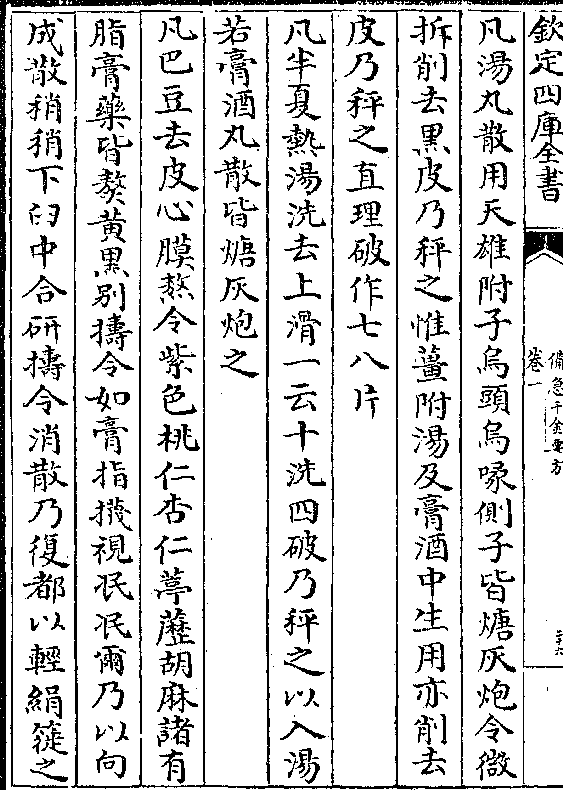 欽定四庫全書
備急千金要方
卷一
二十六
凡湯丸散用天雄附子烏頭烏喙側子皆煻灰炮令微
拆削去黑皮乃秤之惟薑附湯及膏酒中生用亦削去
皮乃秤之直理破作七八片
凡半夏熱湯洗去上滑一云十洗四破乃秤之以入湯
若膏酒丸散皆煻灰炮之
凡巴豆去皮心膜熬令紫色桃仁杏仁葶藶胡麻諸有
脂膏藥皆熬黃黑別擣令如膏指㩢視泯泯爾乃以向
成散稍稍下臼中合研擣令消散乃復都以輕絹簁之